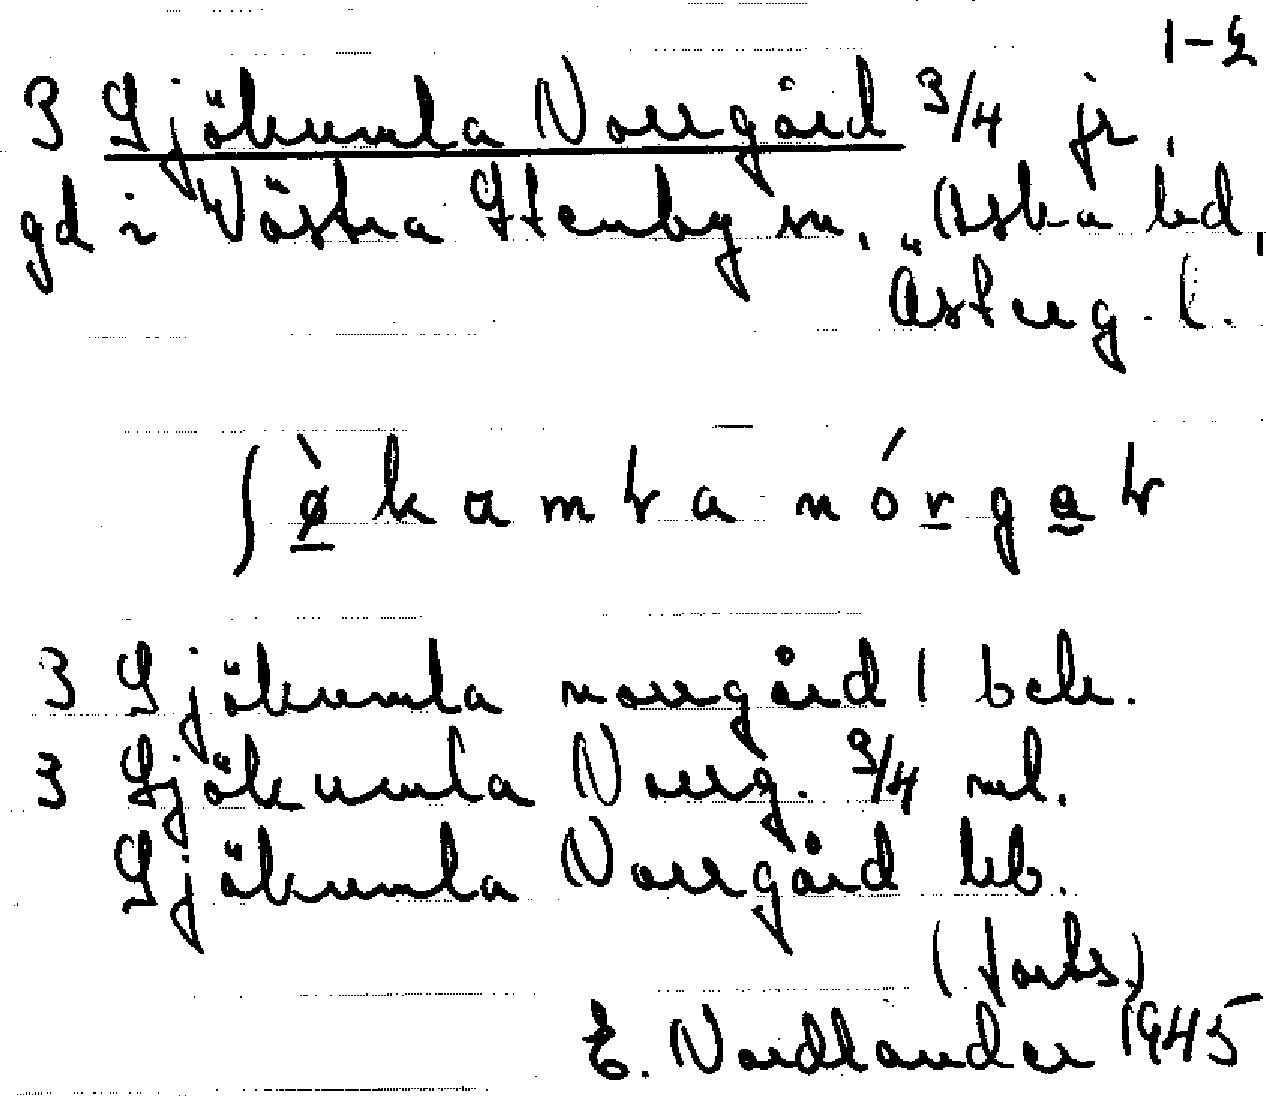 1-2
3 Sjökumla Norrgård 3/4 jr,
gd i Västra Stenby sn, Aska hd,
Österg. l.
ʃø̀kamɫa nórgaɫ
3 Sjökumla norrgård 1 bek.
3 Sjökumla Norrg. 3/4 ml.
Sjökumla Norrgård hb.
(forts.)
E. Nordlander 1945